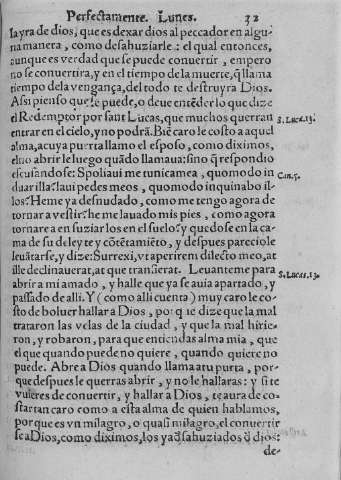 Perfectamente. Lunes. 32
la yra de dios, que es dexar dios al peccador en algu-
na manera, como desahuziarle: el qual entonces,
aunque es verdad que se puede conuertir, empero
no se conuertira, y en el tiempo de la muerte, q̃ llama
tiempo de la vengança, del todo te destruyra Dios.
Assi pienso que se puede, o deue entẽder lo que dize
el Redemptor por sant Lucas, que muchos querran
S. Luca. 13.
entrar en el cielo, y no podrã. Biẽ caro le costo a aquel
alma, a cuya puerta llamo el esposo, como diximos,
el no abrir le luego quãdo llamaua: sino q̃ respondio
escusandose: Spoliaui me tunica mea, quomodo in
Can. 5.
duar illa? laui pedes meos, quomodo inquinabo il-
los? He me ya desnudado, como me tengo agora de
tornar a vestir? he me lauado mis pies, como agora
tornare a ensuziarlos en el suelo? y quedose en la ca-
ma de su deleyte y cõtẽtamiẽto, y despues pareciole
leuãtarse, y dize: Surrexi, vt aperirem dilecto meo, at
ille declinauerat, at que transierat. Leuanteme para
S. Lucas. 13.
abrir a mi amado, y halle que ya se auia apartado, y
passado de alli. Y (como alli cuenta) muy caro le co-
sto de boluer hallar a Dios, porque dize que la mal
trataron las velas de la ciudad, y que la mal hirie-
ron, y robaron, para que entiendas alma mia, que
el que quando puede no quiere, quando quiere no
puede. Abre a Dios quando llama a tu puerta, por-
que despues le querras abrir, y no le hallaras: y si te
vuieres de conuertir, y hallar a Dios, te aura de co-
star tan caro como a esta alma de quien hablamos,
porque es vn milagro, o quasi milagro, el conuertir
se a Dios, como diximos, los ya desahuziados d̃ dios:
de-